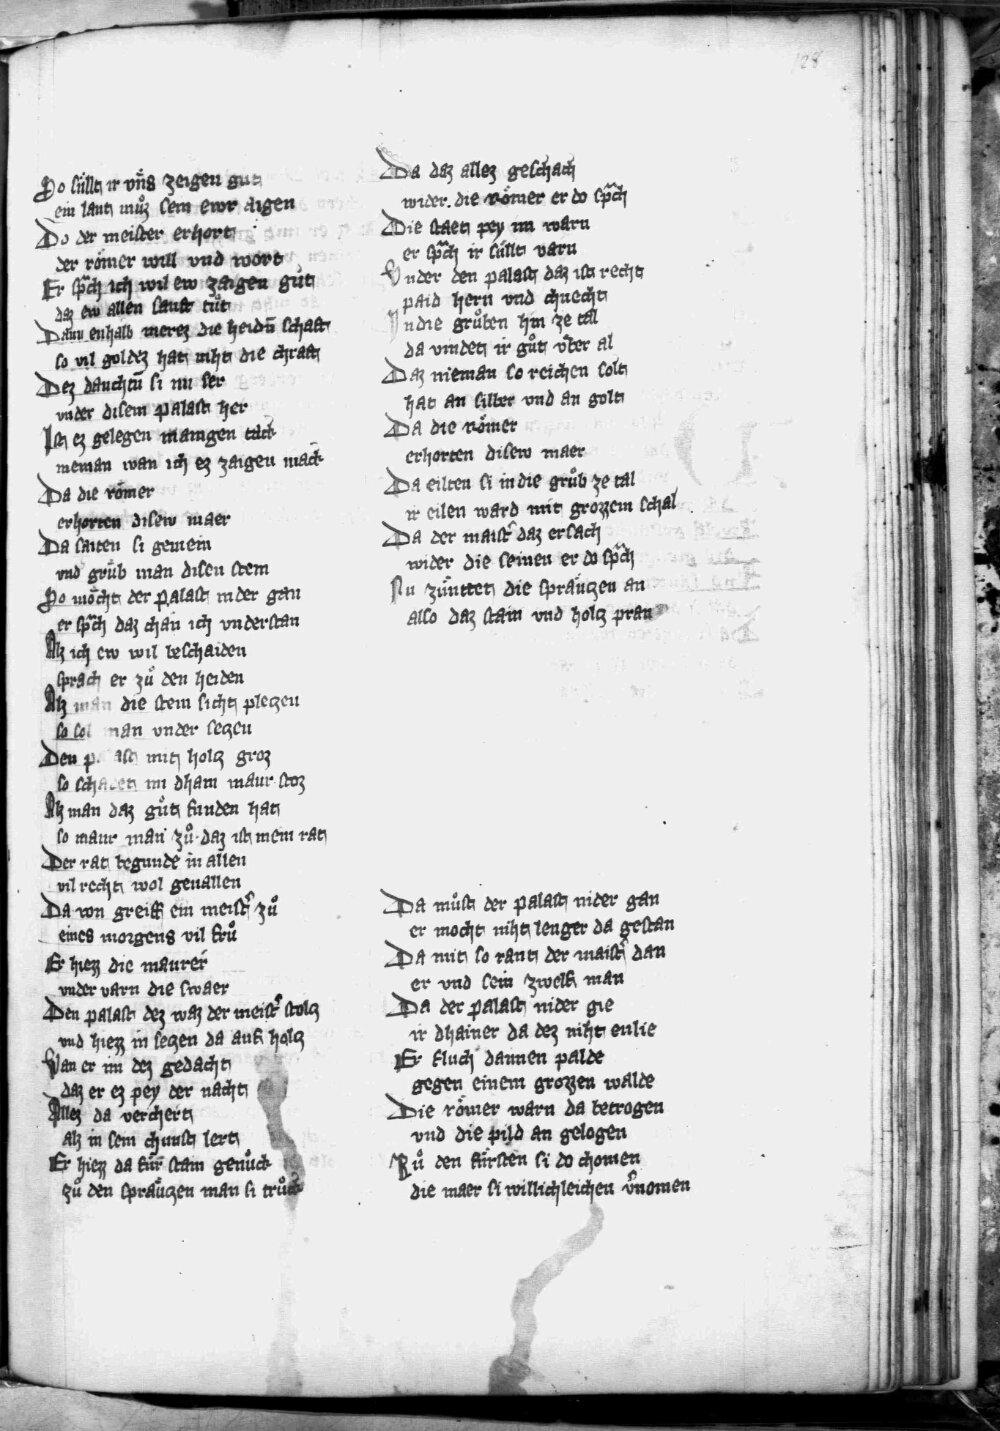 128
So sült ir vns zeigen gut
ein lant muͦz sein ewr aigen
Do der meister erhort
der roͤmer will vnd wort
Er sprͣch ich wil ew zaigen guͦt
daz ew allen sanft tuͦt
Dann enhalb merez die heidn̄ schaft
so vil goldez hat niht die chraft
Dez dauchtn̄ si nu ser
vnder disem palast her
Ist ez gelegen manigen tack
nieman wan ich ez zaigen mack
Da die roͤmer
erhorten disew maer
Da saiten si gemein
vnd gruͤb man disen stein
So moͤcht der palast nider gan
er sprͣch daz chan ich vnderstan
Alz ich ew wil beschaiden
sprach er zuͦ den heiden
Alz man die stein sicht pleczen
so sol man vnder seczen
Den palast mit holcz groz
so schadet im dhain maur stoz
Alz man daz guͦt funden hat
so maur man zuͦ daz ist mein rat
Der rat begunde in allen
vil recht wol geuallen
Da von greiff ein meistͬ zuͦ
eines morgens vil fruͦ
Er hiezz die maurer
vnder varn die swaer
Den palast dez waz der meistͬ stolcz
vnd hiezz in seczen da auf holcz
Wan er im dez gedacht
daz er ez pey der nacht
Allez da verchert
alz in sein chunst lert
Er hiezz da fuͤr stain genuͦck
zuͦ den spraͤuczen man si truͦck
Da daz allez geschach
wider die roͤmer er do sprͣch
Die staet pey im warn
er sprͣch ir sült varn
Vnder den palast daz ist recht
paid hern vnd chnecht
In die gruͦben hin ze tal
da vindet ir guͦt vber al
Daz nieman so reichen solt
hat an silber vnd an golt
Da die roͤmer
erhorten disew maer
Da eilten si in die gruͦb ze tal
ir eilen ward mit grozzem schal
Da der maistͬ daz ersach
wider die seinen er do sprͣch
Nu zuͤnttet die spraͤuczen an
also daz stain vnd holcz pran
Da muͦst der palast nider gan
er mocht niht lenger da gestan
Da mit so rant der maistͬ dan
er vnd sein zwelf man
Da der palast nider gie
ir dhainer da dez niht enlie
Er fluch dannen palde
gegen einem grozzen walde
Die roͤmer warn da betrogen
vnd die pild an gelogen
Zuͦ den fuͤrsten si do chomen
die maer si willichleichen v̄nomen